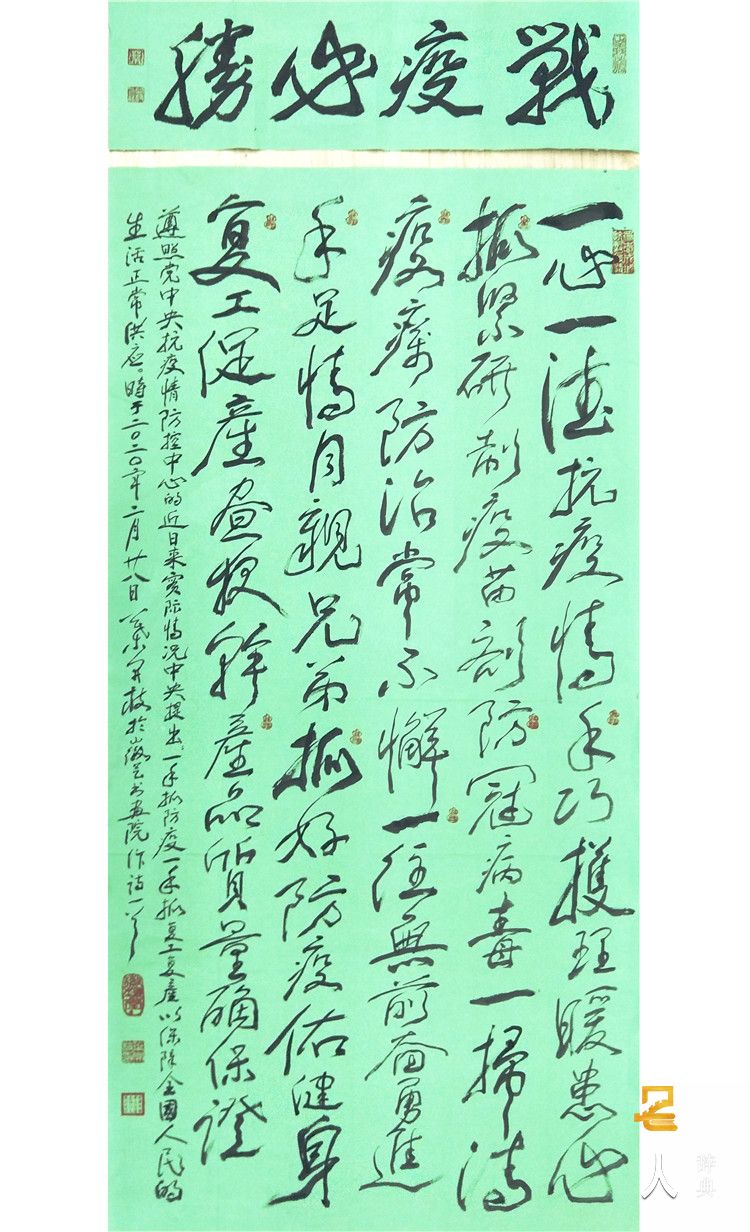 戰疫必勝
一心一德抗疫情手巧護理暖患心
抓緊研制疫苗劑防冠病毒一掃清
疫癘防治常不懈一往無前奋勇進
手足情同親兄弟抓好防疫佑健身
复工促產昼夜幹產品質量确保證
遵照党中央抗疫情防控中心的近日来实际情况中央提出一手抓防疫一手抓复工复產以保障全國人民的
生活正常供应。時于二〇二〇年二月廿八日 於山海艺书画院作诗一首
人
辞典